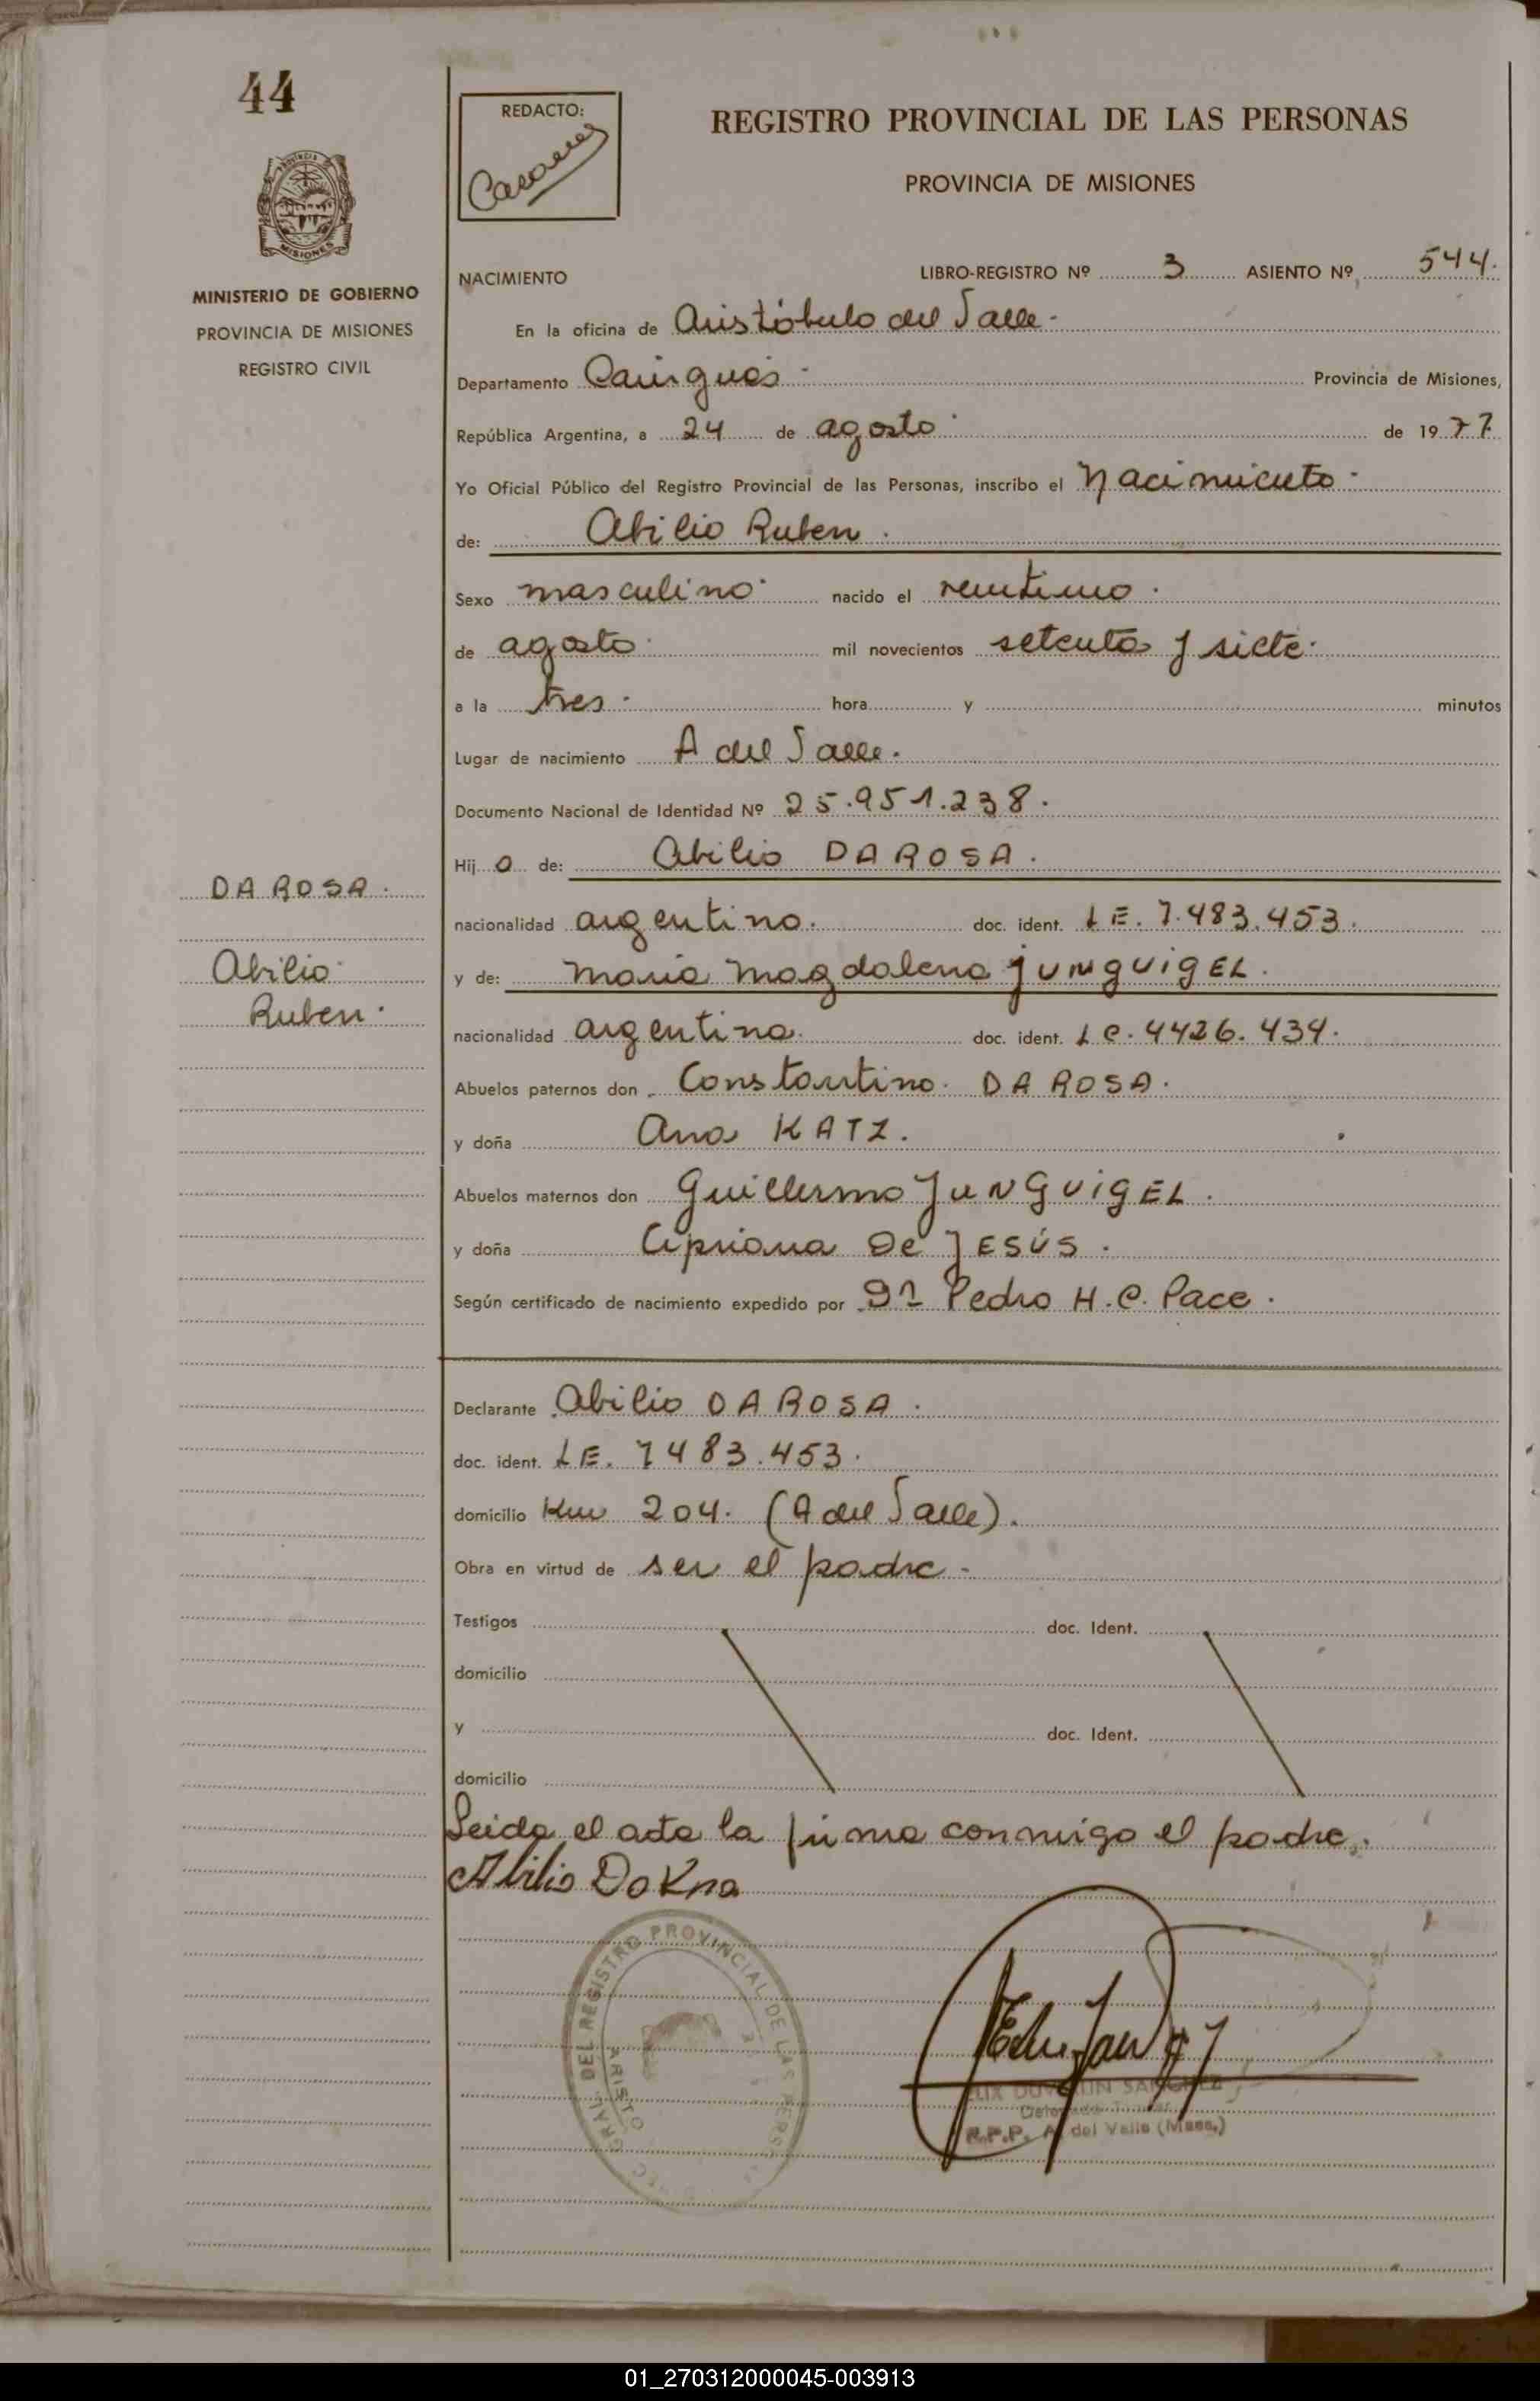 44
REDACTO:
REGISTRO PROVINCIAL DE LAS PERSONAS
PROVINCIA DE MISIONES
MISIONES
MINISTERIO DE GOBIERNO
PROVINCIA DE MISIONES
REGISTRO CIVIL
NACIMIENTO LIBRO-REGISTRO Nº 3 ASIENTO Nº 544.
En la oficina de Aristóbulo del Valle.
Departamento Cainguás Provincia de Misiones,
República Argentina, a 24 de agosto de 1977
Yo Oficial Público del Registro Provincial de las Personas, inscribo el Nacimiento
de: Abilio Ruben.
Sexo masculino nacido el
de agosto mil novecientos setenta y siete.
a la tres hora y minutos
Lugar de nacimiento A del Valle.
Documento Nacional de Identidad Nº 25.951.238.
Hijo de: Abilio DA ROSA.
nacionalidad argentino. doc. ident. LE. 7.483.453.
y de: Maria Magdalena JUNGUIGEL.
nacionalidad argentina. doc. ident. L C. 4426.434.
Abuelos paternos don Constantino DA ROSA.
y doña Ana KATZ.
Abuelos maternos don Guillermo JUNGUIGEL.
y doña Cipriana De JESÚS.
Según certificado de nacimiento expedido por Pedro H. C. Pace.
DA ROSA.
Abilio
Ruben.
Declarante Abilio DA ROSA.
doc. ident. LE. 7483.453.
domicilio Km 204. (A del Valle).
Obra en virtud de ser el padre.
Testigos doc. Ident.
domicilio
y doc. Ident.
domicilio
Leida el acta la firma conmigo el padre,
Abilio
GRAL. DEL REGISTRO PROVINCIAL DE LAS PERS
ARISTO
R.P.P. A. del Valle (Mnes.)
01_270312000045-003913